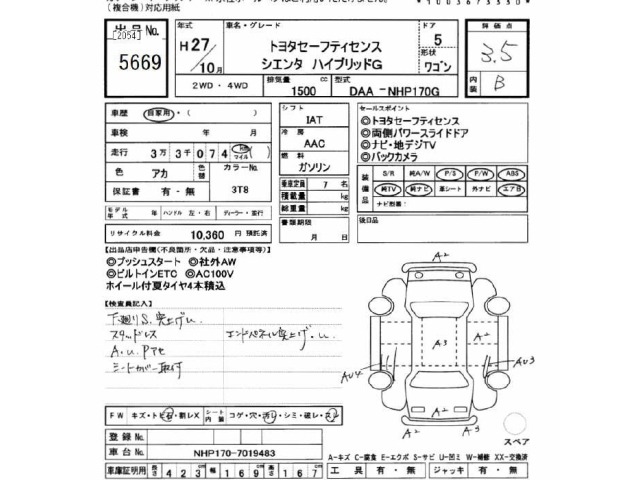 (複合機)対応用紙
出品No.
[2054]
5669
H27/10月
車名・グレード
トヨタセーフティセンス
シエンタ ハイブリッドG
ドア
5
形状
ワゴン
評価点
3.5
内装
B
2WD・4WD
排気量
1500 cc
型式
DAA－NHP170G
車歴
自家用・( )
車検 年 月
走行 3万3千074 km マイル( )
色 アカ
色替
カラーNo.
3T8
保証書 有・無
モデル年式 年
ハンドル 左・右
ディーラー・並行
リサイクル料金 10,360 円 預託済
シフト
IAT
冷房
AAC
燃料
ガソリン
乗車定員 7 名
積載量 kg
総重量 kg
書類期限
月 日
セールスポイント
◎トヨタセーフティセンス
◎両側パワースライドドア
◎ナビ・地デジTV
◎バックカメラ
装備品
S/R 純A/W P/S P/W ABS
純TV 純ナビ 革シート 外ナビ エアB
ナビ別書:
後日品
【出品店申告欄(不良箇所・欠品・注意事項等)】
◎プッシュスタート ◎社外AW
◎ビルトインETC ◎AC100V
ホイール付夏タイヤ4本積込
【検査員記入】
下廻りS.突上げ
スタッドレス
エンドパネル突上げ
シートカバー取付
A2
A3
AU4
AU3
A2
A2
A2
スペア
FW キズ・トビ石・割レX
シート内装
コゲ・穴・汚レ・シミ・破レ・スレ
登録No.
車台No. NHP170-7019483
車庫証明用 長さ 423 cm 幅 169 cm 高さ 167 cm
A-キズ C-腐食 E-エクボ S-サビ U-凹ミ W-補修 XX-交換済
工具 有・無 ジャッキ 有・無